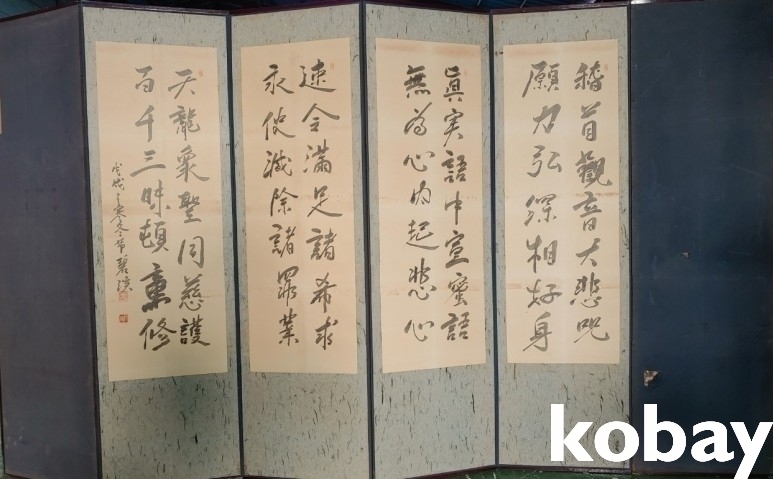 稽首觀音大悲呪
願力弘深相好身
眞実語中宣蜜語
無為心內起悲心
速令滿足諸希求
永使滅除諸罪業
天龍衆聖同慈護
百千三昧頓熏修
戊戌之寒冬節碧
kobay